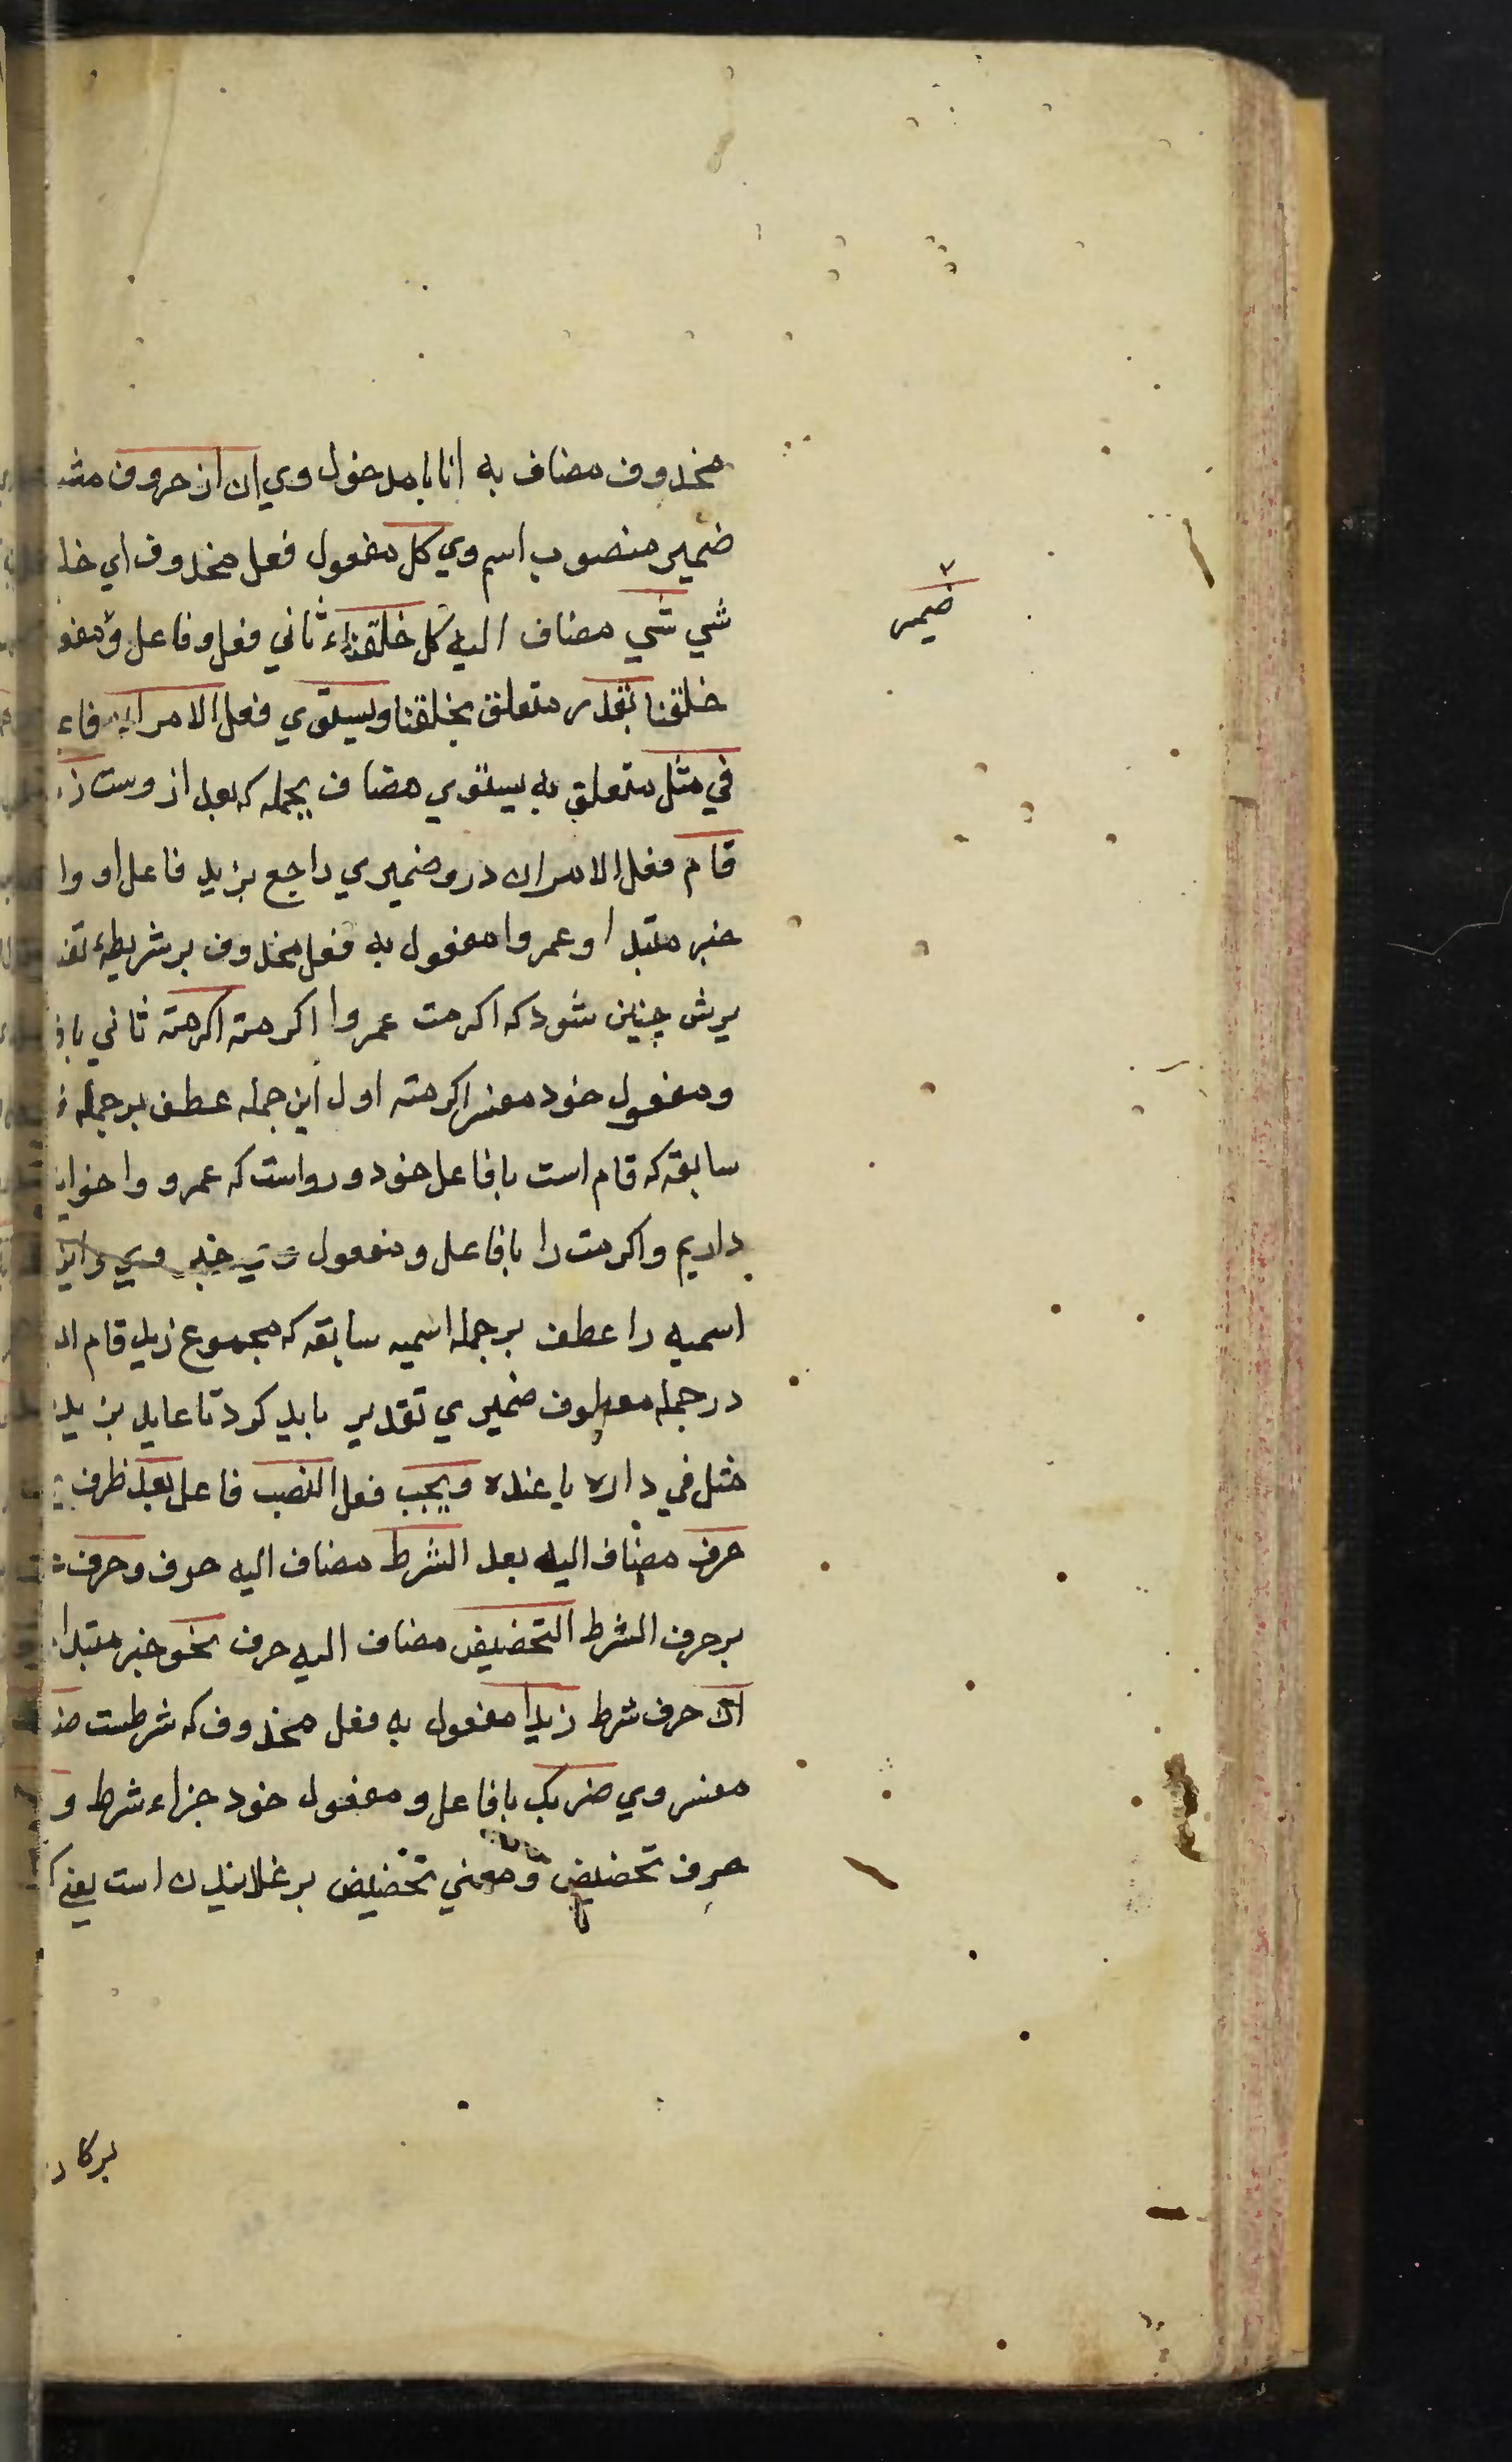 محذوف مضاف به انا با مدخول وي ان از حروف مشـ
ضمير منصوب اسم وي كل مفعول فعل محذوف اي خلـ
ضمير
شي شي مضاف اليه كل خلقناه ثاني فعل و فاعل و مفعو
خلقنا بقدر متعلق بخلقنا ويستوي فعل الامران فاء
في مثل متعلق به يستوي مضاف بجمله كه بعد از وست ز
قام فعل الامران درو ضميري راجع بزيد فاعل او وا
خبر مبتدا و عمروا مفعول به فعل محذوف بر شريطهٔ تفـ
يرش چنين شود كه اكرمت عمروا اكرمته اكرمته ثاني با فـ
و مفعول خود مفسر اكرمته اول اين جمله عطف بر جملهٔ فـ
سابقه كه قام است با فاعل خود و رواست كه عمرو وا خوانـ
داريم و اكرمت را با فاعل و مفعول وي خبر وي و اين
اسميه را عطف بر جمله اسميه سابقه كه مجموع زيد قام ا
در جمله معطوف ضميري تقدير بايد كرد تا عايد بزيد
مثل في داره يا عنده ويجب فعل النصب فاعل بعد ظرف يـ
حرف مضاف اليه بعد الشرط مضاف اليه حرف و حرف
بر حرف الشرط التحضيض مضاف اليه حرف نحو خبر مبتدا
ان حرف شرط زيدا مفعول به فعل محذوف كه شرطست ضـ
مفسر وي ضربك با فاعل و مفعول خود جزاء شرط و
حرف تحضيض و معني تحضيض بر غلانيدن است يعني
بر كار